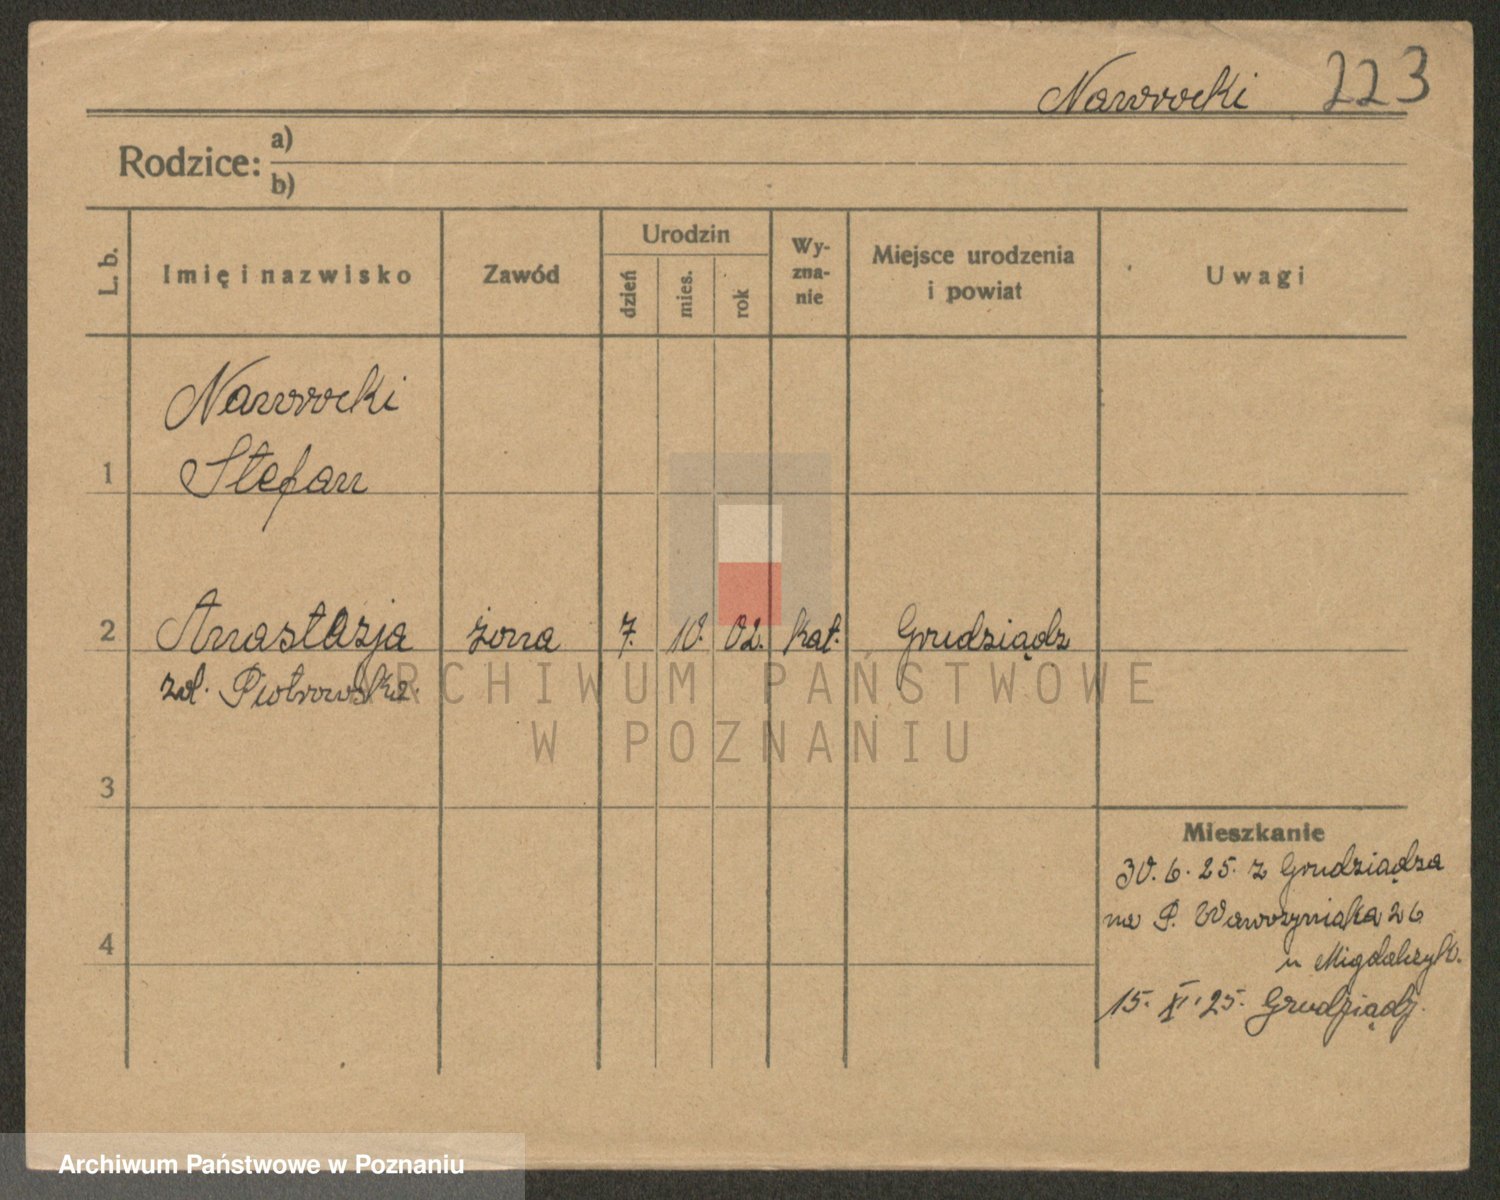 Nawrocki 223
Rodzice: a)
b)
L. b.
Imię i nazwisko
Zawód
Urodzin
dzień
mies.
rok
Wy-
zna-
nie
Miejsce urodzenia
i powiat
Uwagi
Nawrocki
1 Stefan
2 Anastazja żona 7. 10. 02. kat. Grudziądz
zd. Piotrowska
ARCHIWUM PAŃSTWOWE
W POZNANIU
3
Mieszkanie
30. 6. 25. z Grudziądza
na P. Wawrzyniaka 26
4
u
15. XI. 25. Grudziądz.
Archiwum Państwowe w Poznaniu